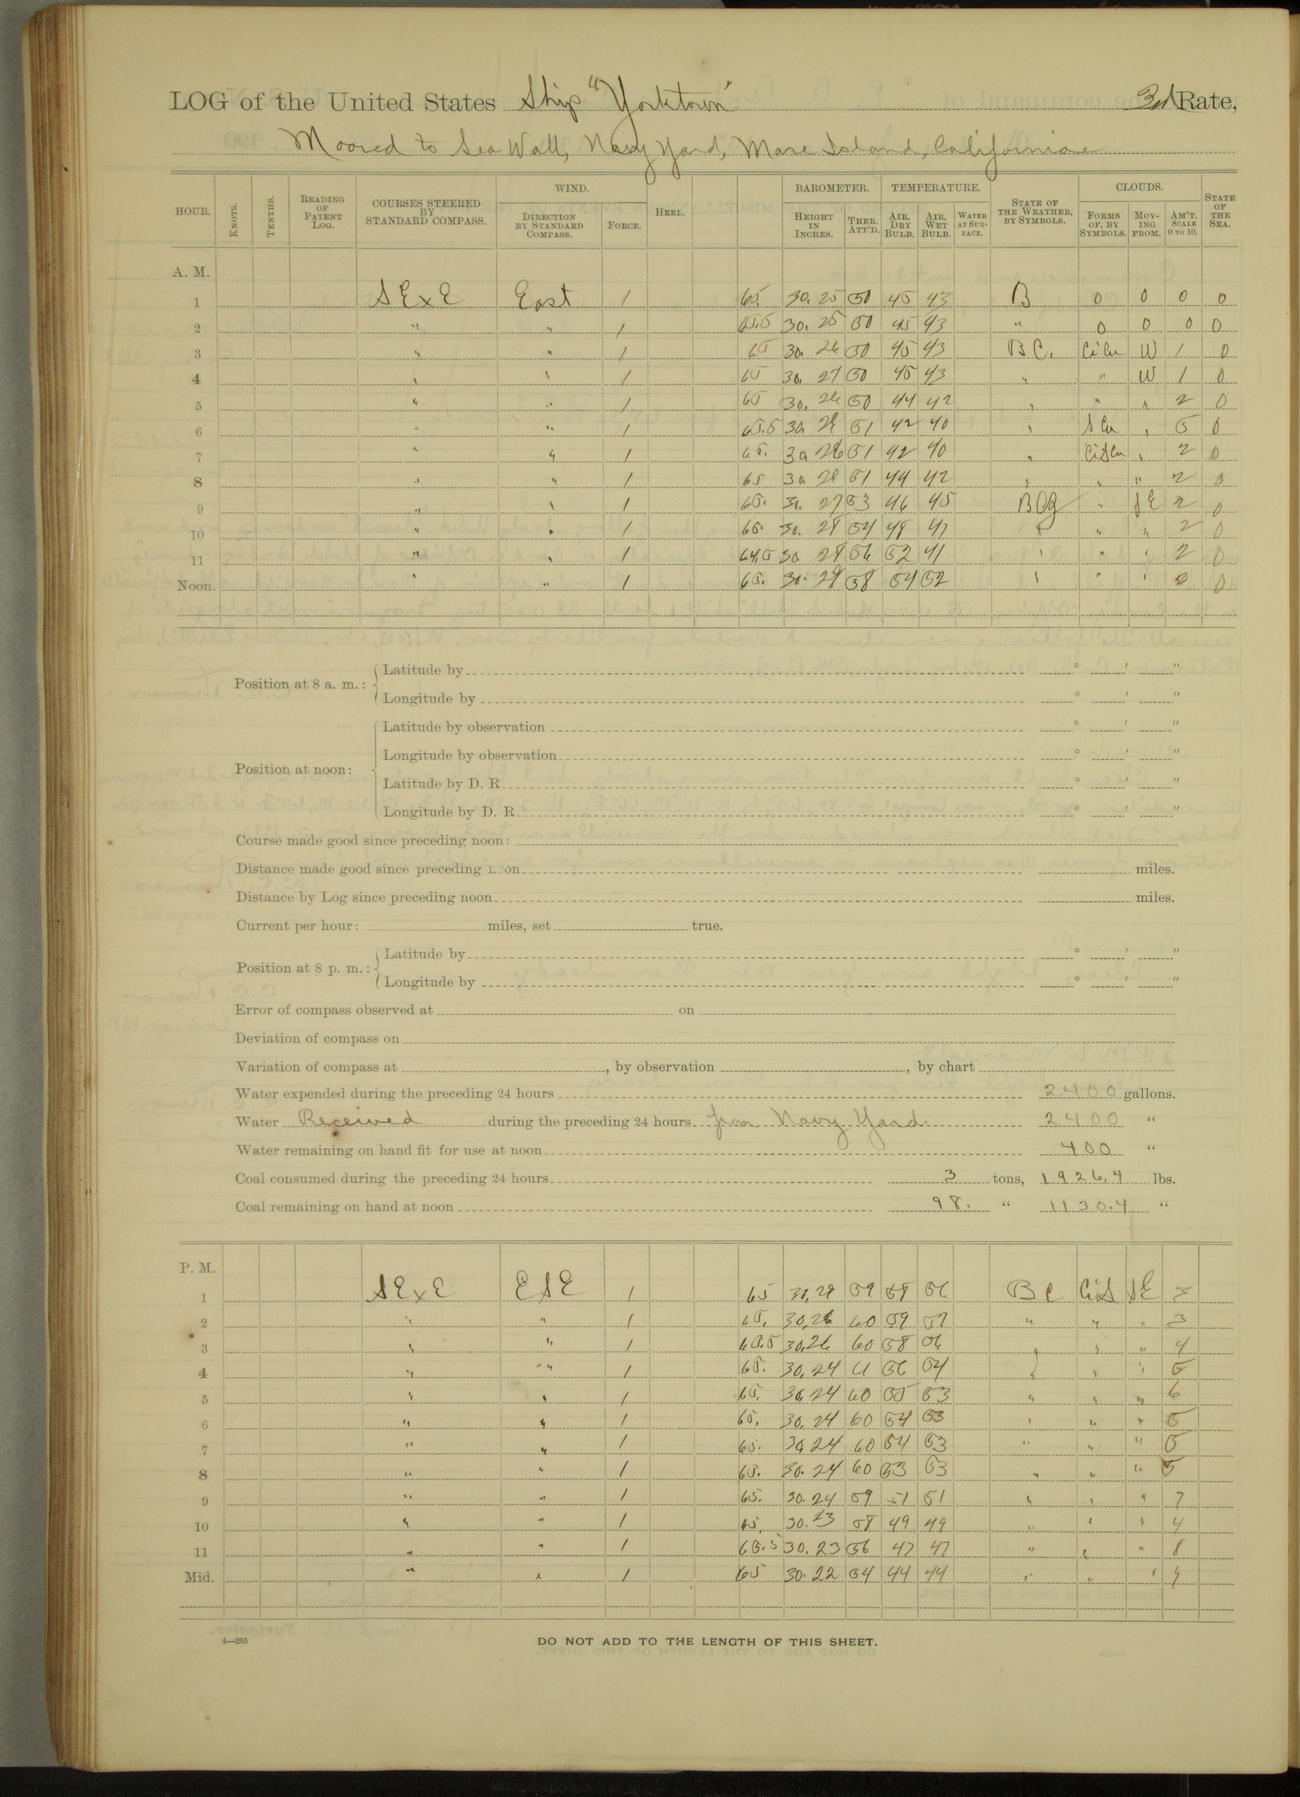 LOG of the United States Ship "Yorktown" 3d Rate,
Moored to Sea Wall, Navy Yard, Mare Island, California
HOUR. KNOTS. TENTHS. READING OF PATENT LOG. COURSES STEERED BY STANDARD COMPASS. WIND. DIRECTION BY STANDARD COMPASS. FORCE. HEEL. BAROMETER. HEIGHT IN INCHES. THER. ATT'D. TEMPERATURE. AIR, DRY BULB. AIR, WET BULB. WATER AT SUR-FACE. STATE OF THE WEATHER, BY SYMBOLS. CLOUDS. FORMS OF, BY SYMBOLS. MOV-ING FROM. AM'T. SCALE 0 TO 10. STATE OF THE SEA.
A. M.
1 SExE East 1 65. 30.25 50 45 43 B 0 0 0 0
2 " " 1 65.5 30.25 50 45 43 " 0 0 0 0
3 " " 1 65 30.26 50 45 43 BC. CiCu W 1 0
4 " " 1 65 30.27 50 45 43 " " W 1 0
5 " " 1 65 30.26 50 44 42 " " " 2 0
6 " " 1 65.5 30.28 51 42 40 " SCu " 5 0
7 " " 1 65. 30.26 51 42 40 " CiSCu " 2 0
8 " " 1 65 30.28 51 44 42 " " " 2 0
9 " " 1 65. 30.27 53 46 45 BCg " SE 2 0
10 " " 1 65. 30.28 54 48 47 " " " 2 0
11 " " 1 64.5 30.28 56 52 41 " " " 2 0
Noon. " " 1 65. 30.29 58 54 52 " " " 0
Position at 8 a. m.: Latitude by ° ′ ″
Longitude by ° ′ ″
Position at noon: Latitude by observation ° ′ ″
Longitude by observation ° ′ ″
Latitude by D. R. ° ′ ″
Longitude by D. R. ° ′ ″
Course made good since preceding noon:
Distance made good since preceding noon miles.
Distance by Log since preceding noon miles.
Current per hour: miles, set true.
Position at 8 p. m.: Latitude by ° ′ ″
Longitude by ° ′ ″
Error of compass observed at on
Deviation of compass on
Variation of compass at , by observation , by chart
Water expended during the preceding 24 hours 2400 gallons.
Water Received during the preceding 24 hours from Navy Yard. 2400 "
Water remaining on hand fit for use at noon 400 "
Coal consumed during the preceding 24 hours 3 tons, 1926.4 lbs.
Coal remaining on hand at noon 98. " 1130.4 "
P. M.
1 SExE ESE 1 65 30.28 59 58 56 BC CiS SE 3
2 " " 1 65. 30.26 60 59 57 " " " 3
3 " " 1 65.5 30.26 60 58 56 " " " 4
4 " " 1 65. 30.24 61 56 54 " " " 5
5 " " 1 65. 30.24 60 55 53 " " " 6
6 " " 1 65. 30.24 60 54 53 " " " 5
7 " " 1 65. 30.24 60 54 53 " " " 5
8 " " 1 65. 30.24 60 53 53 " " " 5
9 " " 1 65. 30.24 59 51 51 " " " 7
10 " " 1 65. 30.23 58 49 49 " " " 4
11 " " 1 65.5 30.23 56 47 47 " " " 8
Mid. " " 1 65 30.22 54 44 44 " " " 9
4—265
DO NOT ADD TO THE LENGTH OF THIS SHEET.